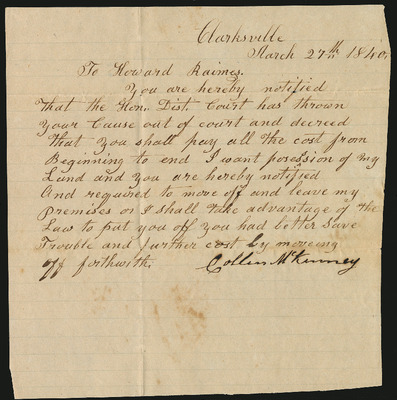 Clarksville
March 27th 1840,
To Howard Raimes.
You are hereby notified
That the Hon. Dist. Court has thrown
Your Cause out of court and decreed
That you shall pay all the cost from
Beginning to end I want posession of my
Land and you are hereby notified
And required to more off and leave my
Premises or I shall take advantage of the
Law to put you off you had better save
Trouble and further cost by moveing
off forthwith.
Collin McKinney